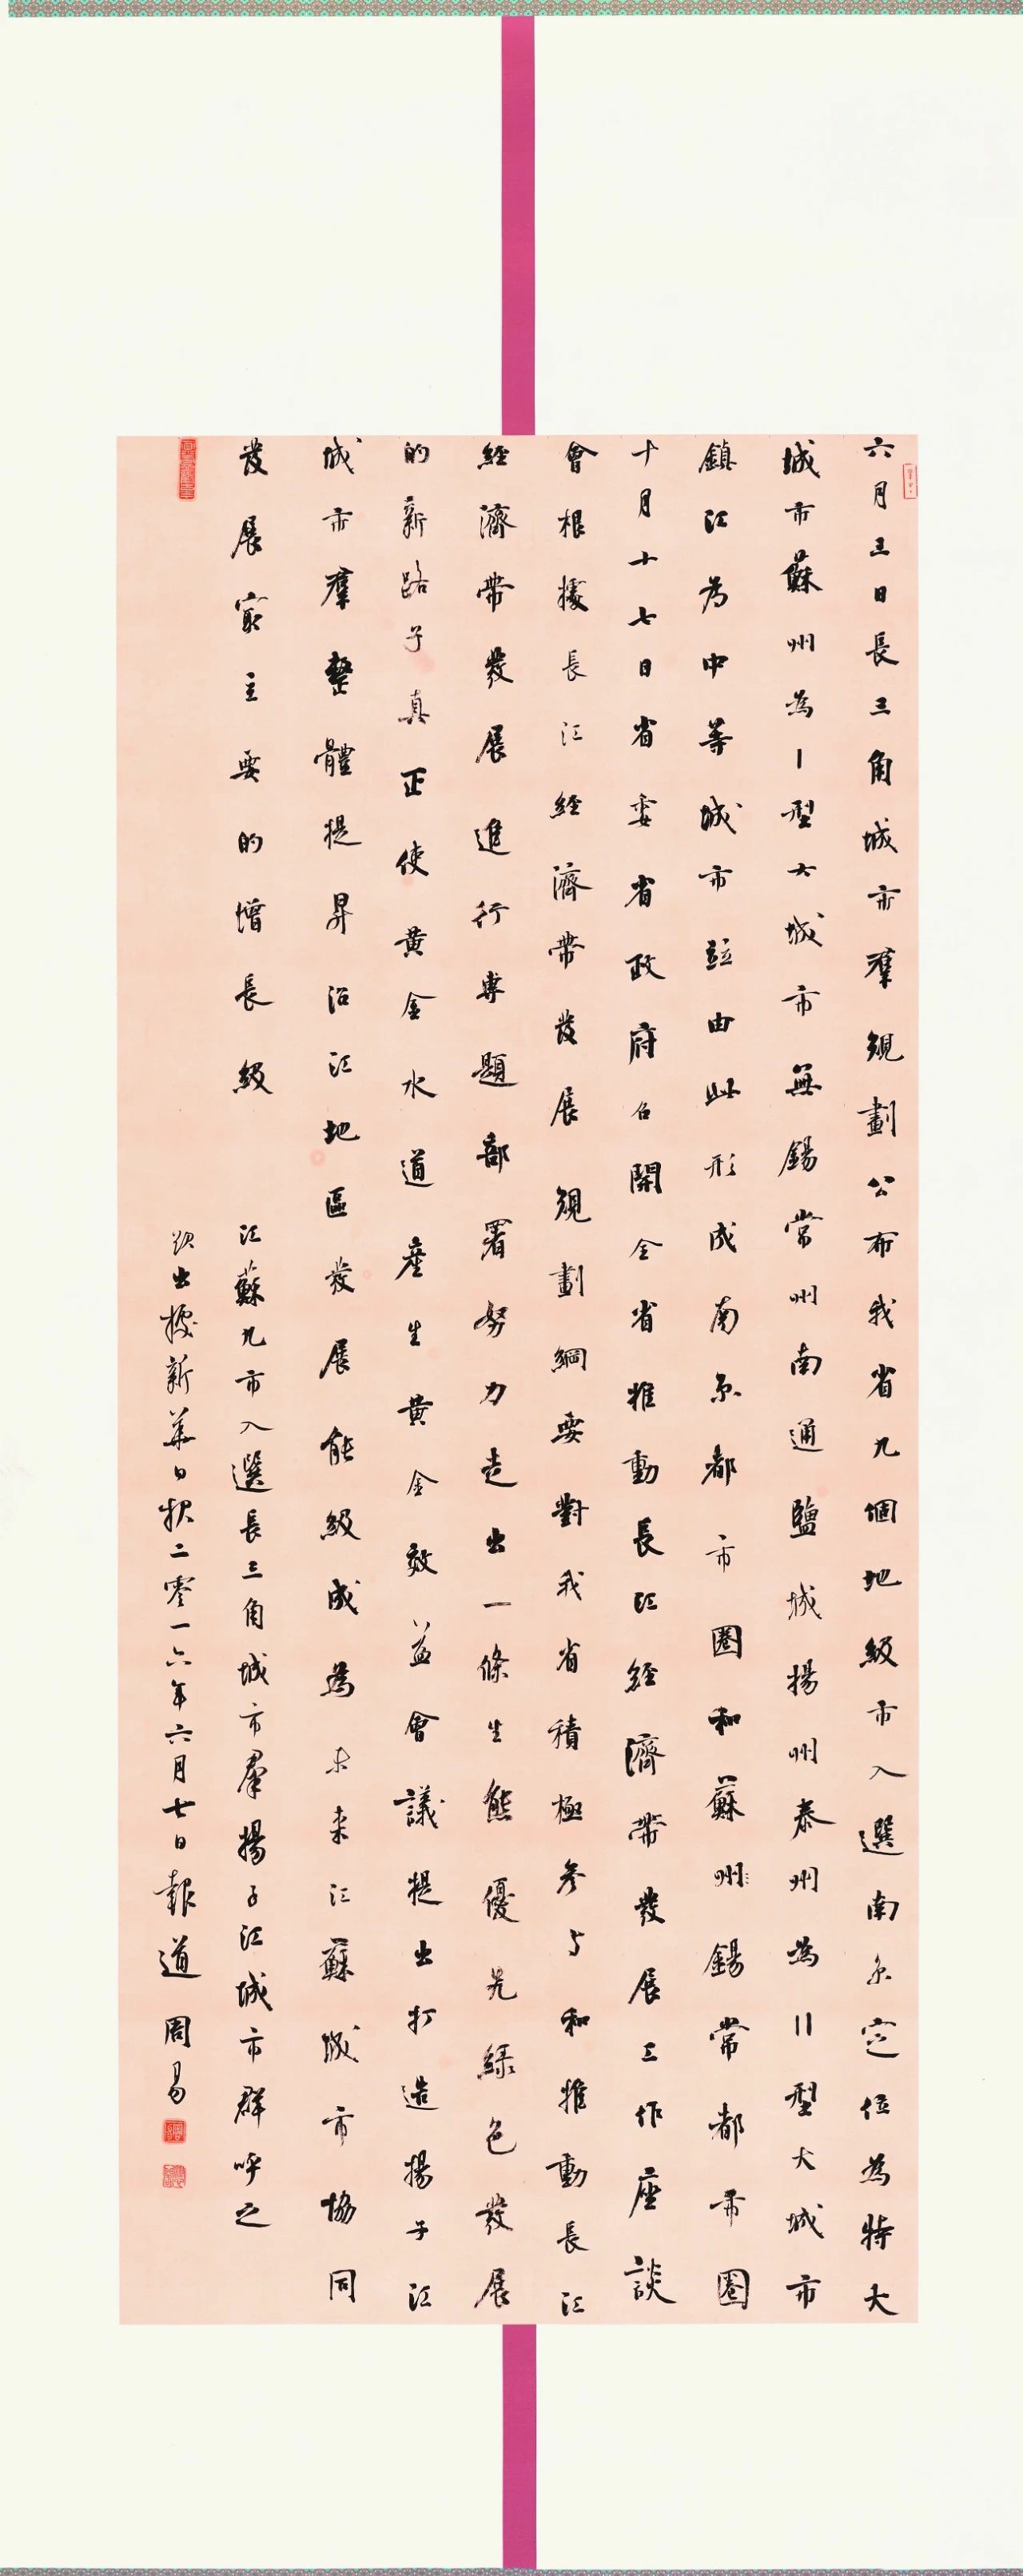 六月三日長三角城市羣規劃公布我省九個地級市入選南京定位為特大
城市蘇州為I型大城市無錫常州南通鹽城揚州泰州為II型大城市
鎮江為中等城市竝由此形成南京都市圈和蘇州錫常都市圈
十月十七日省委省政府召開全省推動長江經濟帶發展工作座談
會根據長江經濟帶發展規劃綱要對我省積極參与和推動長江
經濟帶發展進行專題部署努力走出一條生態優先綠色發展
的新路子真正使黃金水道產生黃金效益會議提出打造揚子江
城市羣整體提昇沿江地區發展能級成為未来江蘇城市協同
發展最主要的增長級 江蘇九市入選長三角城市羣揚子江城市群呼之
欲出據新華日报二零一六年六月七日報道 周易